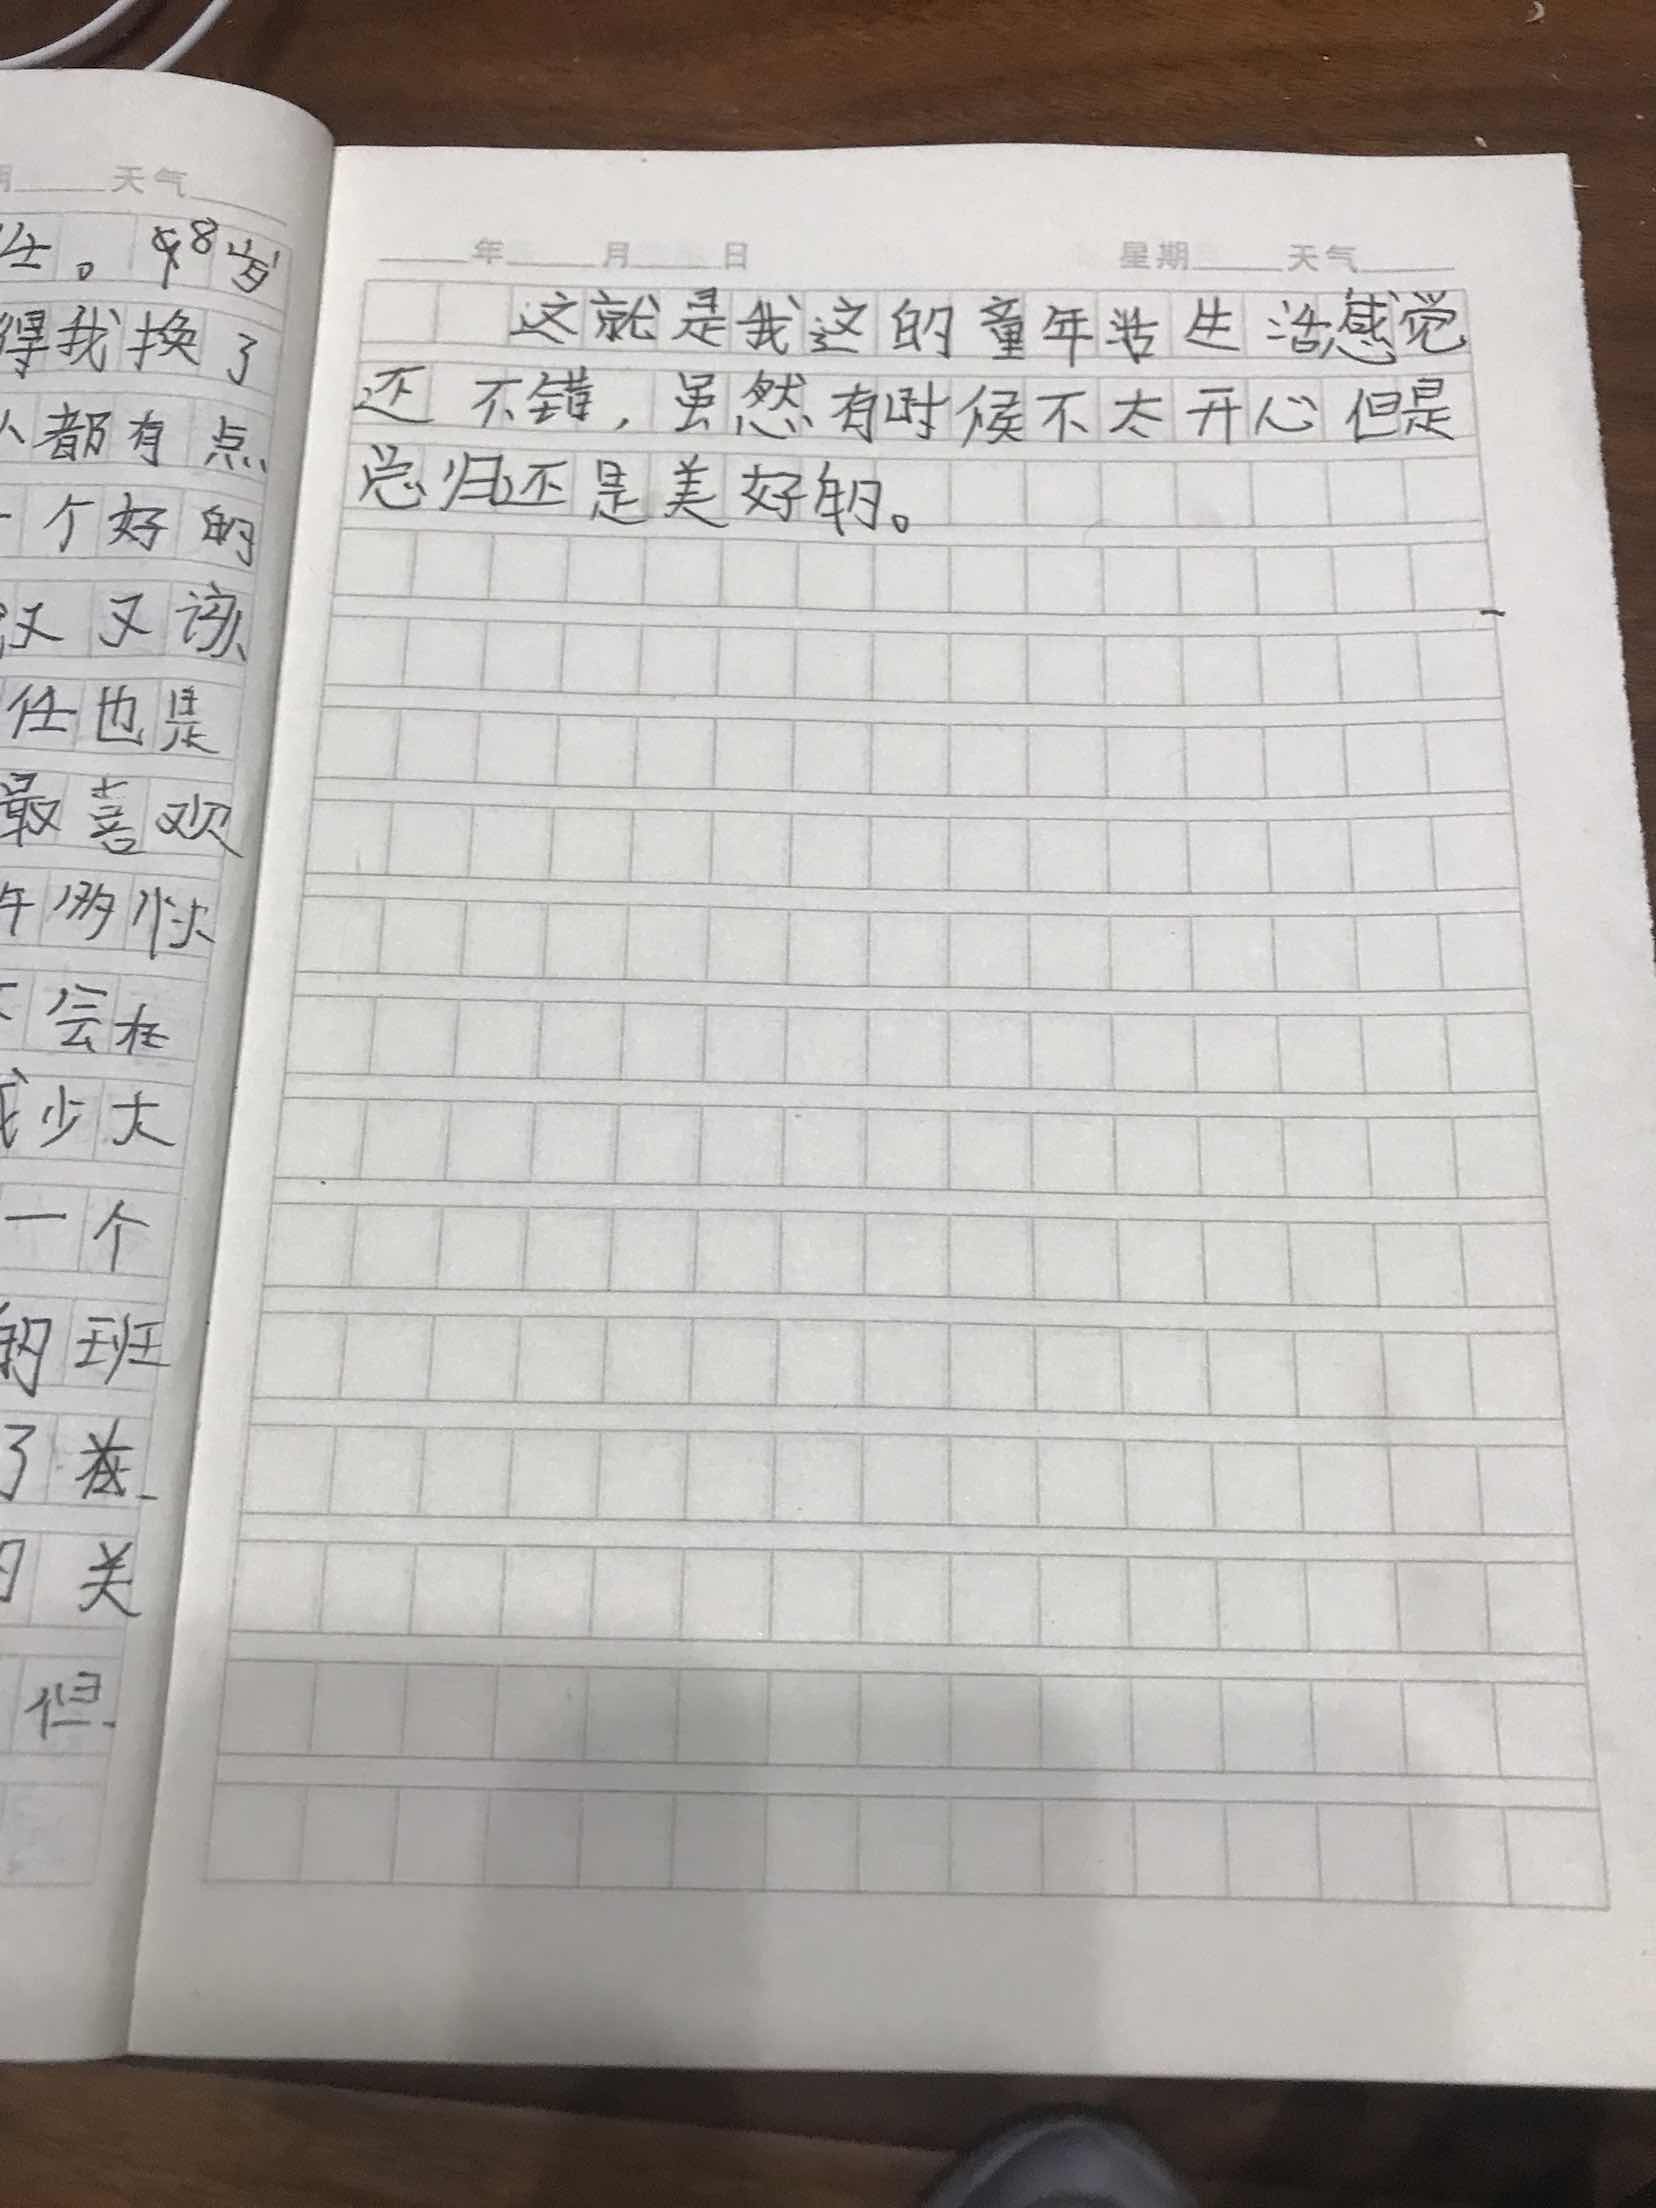 天气
。98岁
得我换了
都有点
一个好的
汉又该
任也是
最喜欢
年多快
会在
我少大
一个
的班
了在
的关
但
年 月 日 星期 天气
这就是我这的童年活生活感觉
还不错，虽然有时候不太开心但是
总归还是美好的。